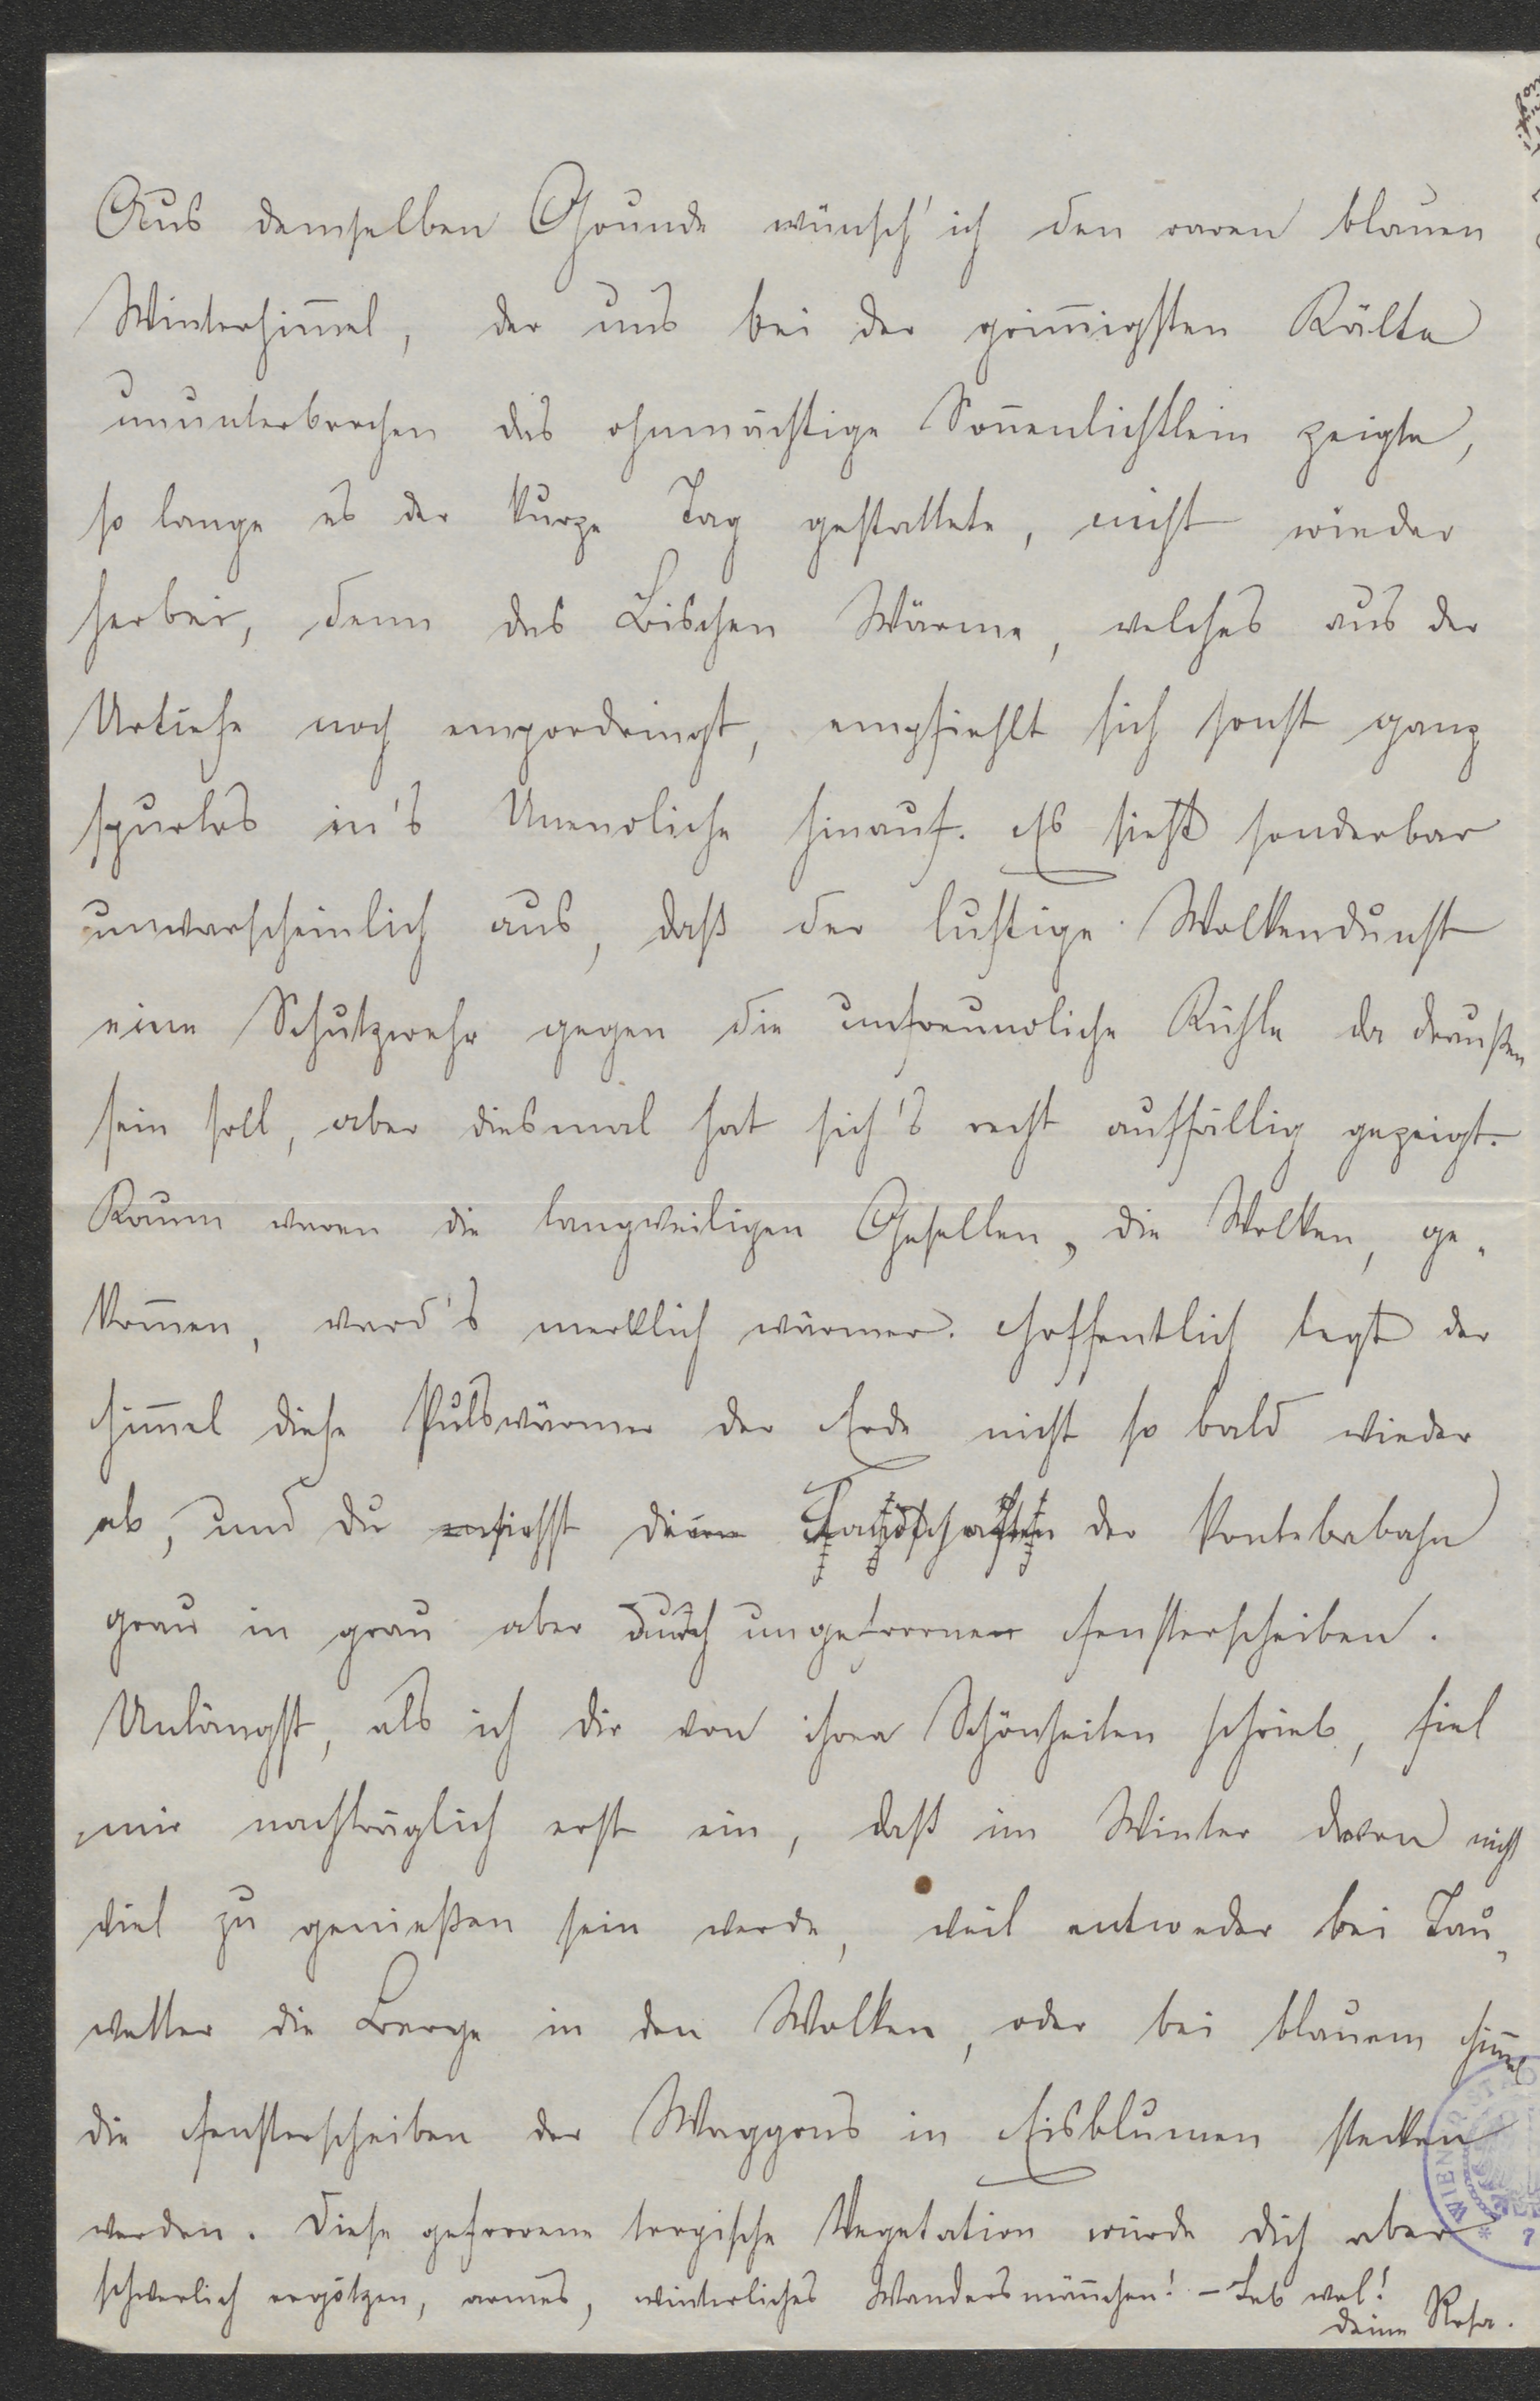 Aus demselben Grunde wünsch' ich den raren blauen
Winterhim̄el, der uns bei der grim̄igsten Kälte
ununterbrochen das ohnmächtige Son̄enlichtlein zeigte,
so lange es der kurze Tag gestattete, nicht wieder
herbei, denn das Bischen Wärme, welches aus der
Urtiefe noch empordringt, empfiehlt sich sonst ganz
spurlos in's Unendliche hinauf. Es sieht sonderbar
unwarscheinlich aus, daß der luftige Wolkendunst
eine Schutzwehr gegen die unfreundliche Kühle da draußen
sein soll, aber diesmal hat sich's recht auffällig gezeigt.
Kaum waren die langweiligen Gesellen, die Wolken, ge-
kom̄en, ward's merklich wärmer. Hoffentlich legt der
Him̄el diese Pulswärmer der Erde nicht so bald wieder
ab, und du siehst die Landschaften der Pontebabahn
grau in grau aber durch ungefrorne Fensterscheiben.
Unlängst, als ich dir von ihren Schönheiten schrieb, fiel
mir nachträglich erst ein, daß im Winter davon nicht
viel zu genießen sein werde, weil entweder bei Tau-
wetter die Berge in den Wolken, oder bei blauem Him̄el
die Fensterscheiben der Waggons in Eisblumen stecken
werden. Diese gefrorene tropische Vegetation würde dich aber
schwerlich ergötzen, armes, winterliches Wandersmän̄chen! – Leb wol!
deine Rosa.
WIEN